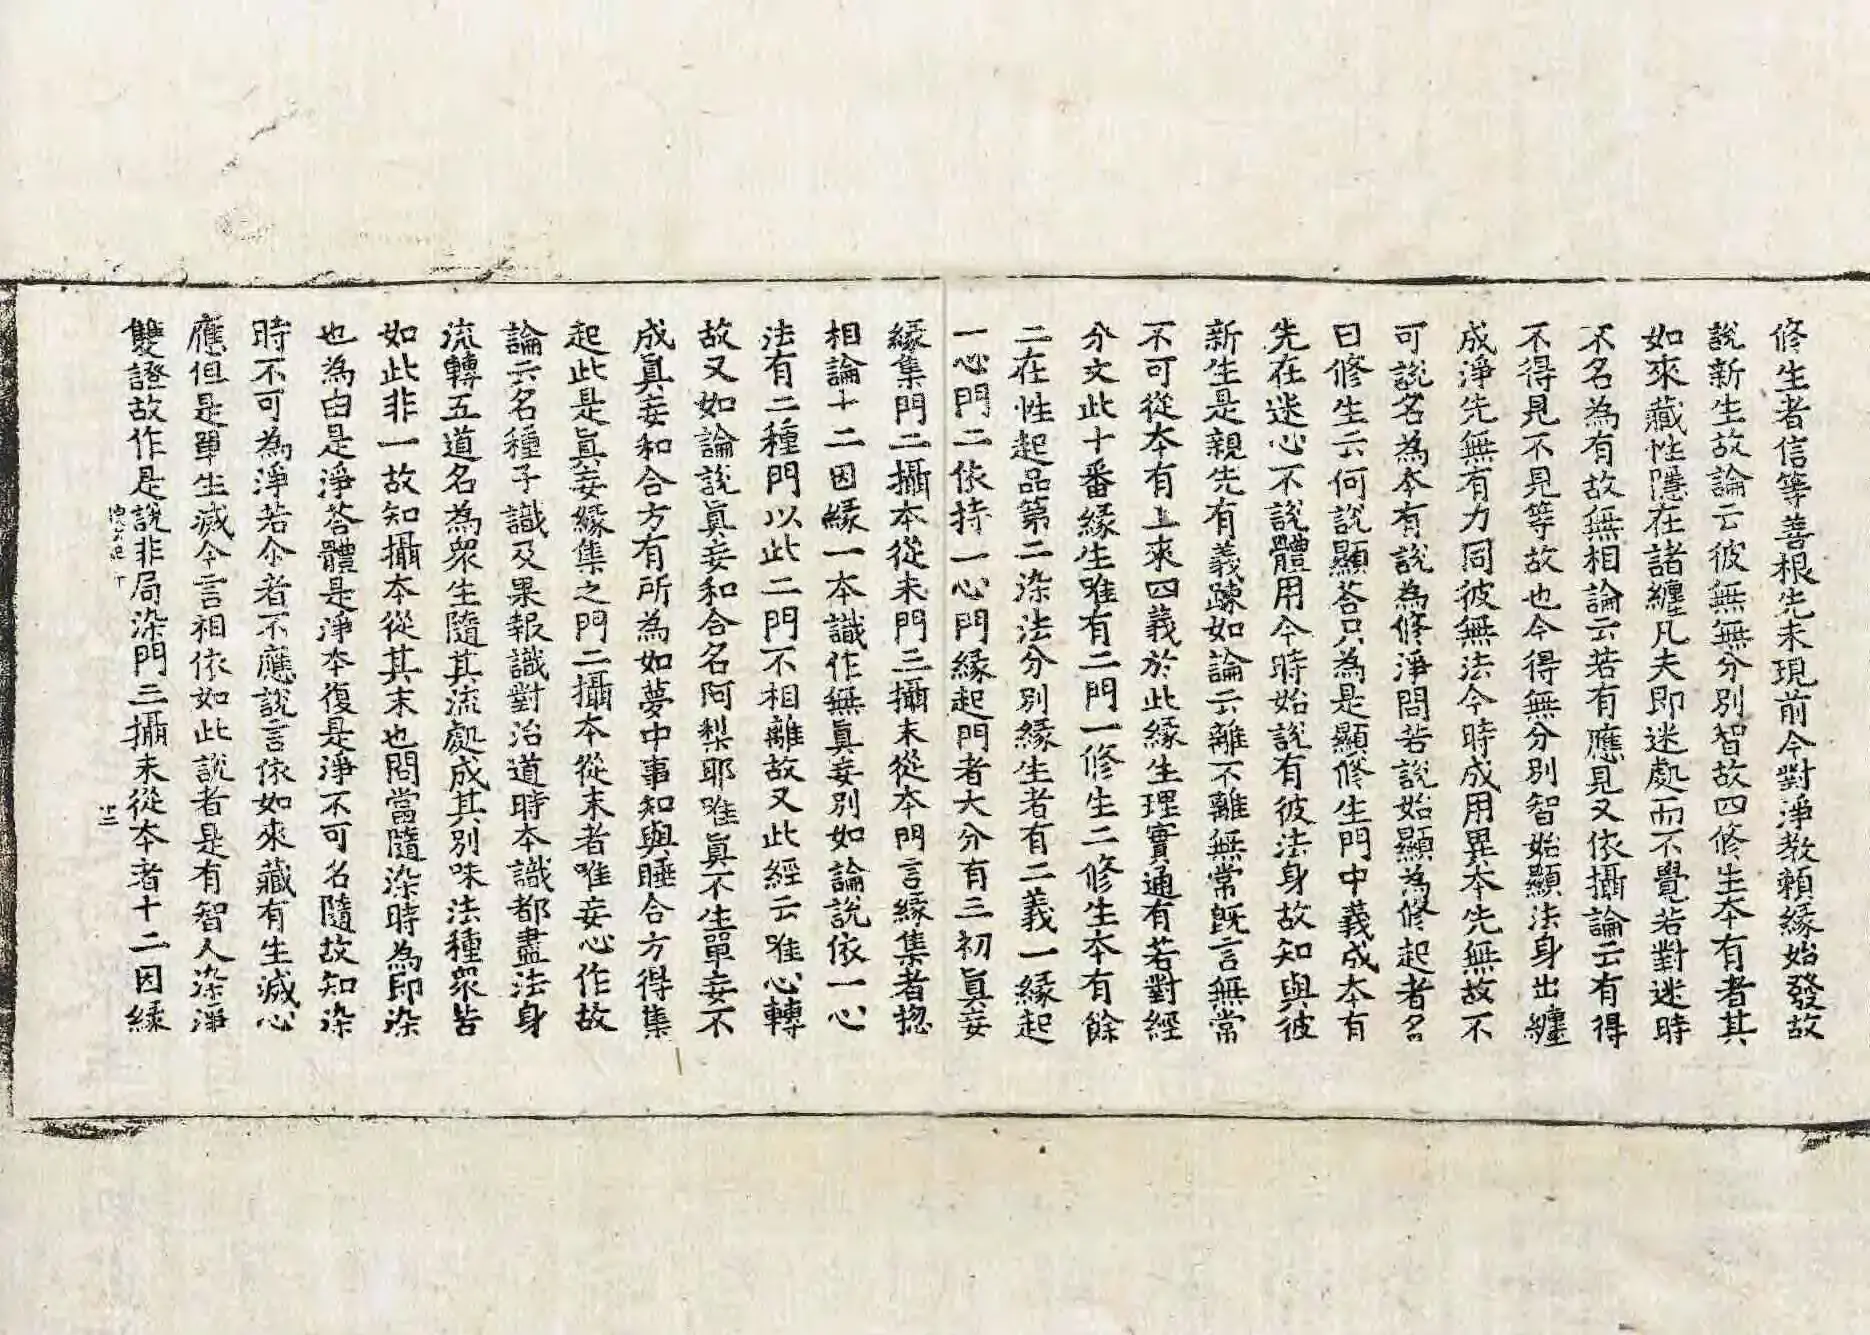 修生者信等善根先未現前今對淨教賴緣始發故
說新生故論云彼無無分別智故四修生本有者其
如來藏性隱在諸纏凡夫即迷處而不覺若對迷時
不名為有故無相論云若有應見又依攝論云有得
不得見不見等故也今得無分別智始顯法身出纏
成淨先無有力同彼無法今時成用異本先無故不
可說名為本有說為修淨問若說始顯為修起者名
曰修生云何說顯荅只為是顯修生門中義成本有
先在迷心不說體用今時始說有彼法身故知與彼
新生是親先有義踈如論云離不離無常既言無常
不可從本有上來四義於此緣生理實通有若對經
分文此十番緣生唯有二門一修生二修生本有餘
二在性起品第二染法分別緣生者有二義一緣起
一心門二依持一心門緣起門者大分有三初眞妄
緣集門二攝本從末門三攝末從本門言緣集者揔
相論十二因緣一本識作無眞妄別如論說依一心
法有二種門以此二門不相離故又此經云唯心轉
故又如論說眞妄和合名阿梨耶唯眞不生單妄不
成眞妄和合方有所為如夢中事知與睡合方得集
起此是眞妄緣集之門二攝本從末者唯妄心作故
論云名種子識及果報識對治道時本識都盡法身
流轉五道名為衆生隨其流處成其別味法種衆苦
如此非一故知攝本從其末也問當隨染時為即染
也為白是淨荅體是淨本復是淨不可名隨故知染
時不可為淨若尒者不應說言依如來藏有生滅心
應但是單生滅今言相依如此說者是有智人染淨
雙證故作是說非局染門三攝末從本者十二因緣